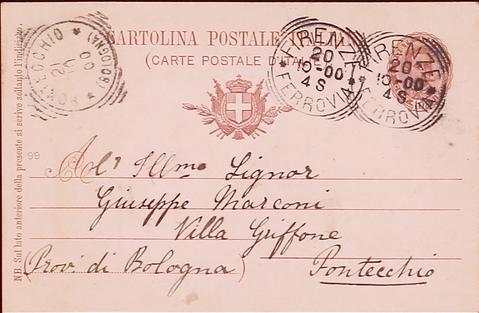 CARTOLINA POSTALE
(CARTE POSTALE D'ITA
FIRENZE
20
10-00
4S
FERROVIA
FIRENZE
20
10-00
4S
FERROVIA
ECCHIO
(BOLOGNA)
20
00
99
NB. Sul lato anteriore della presente si scrive soltanto l'indirizzo.
All' Illmo Signor
Giuseppe Marconi
Villa Griffone
(Prov. di Bologna)
Pontecchio